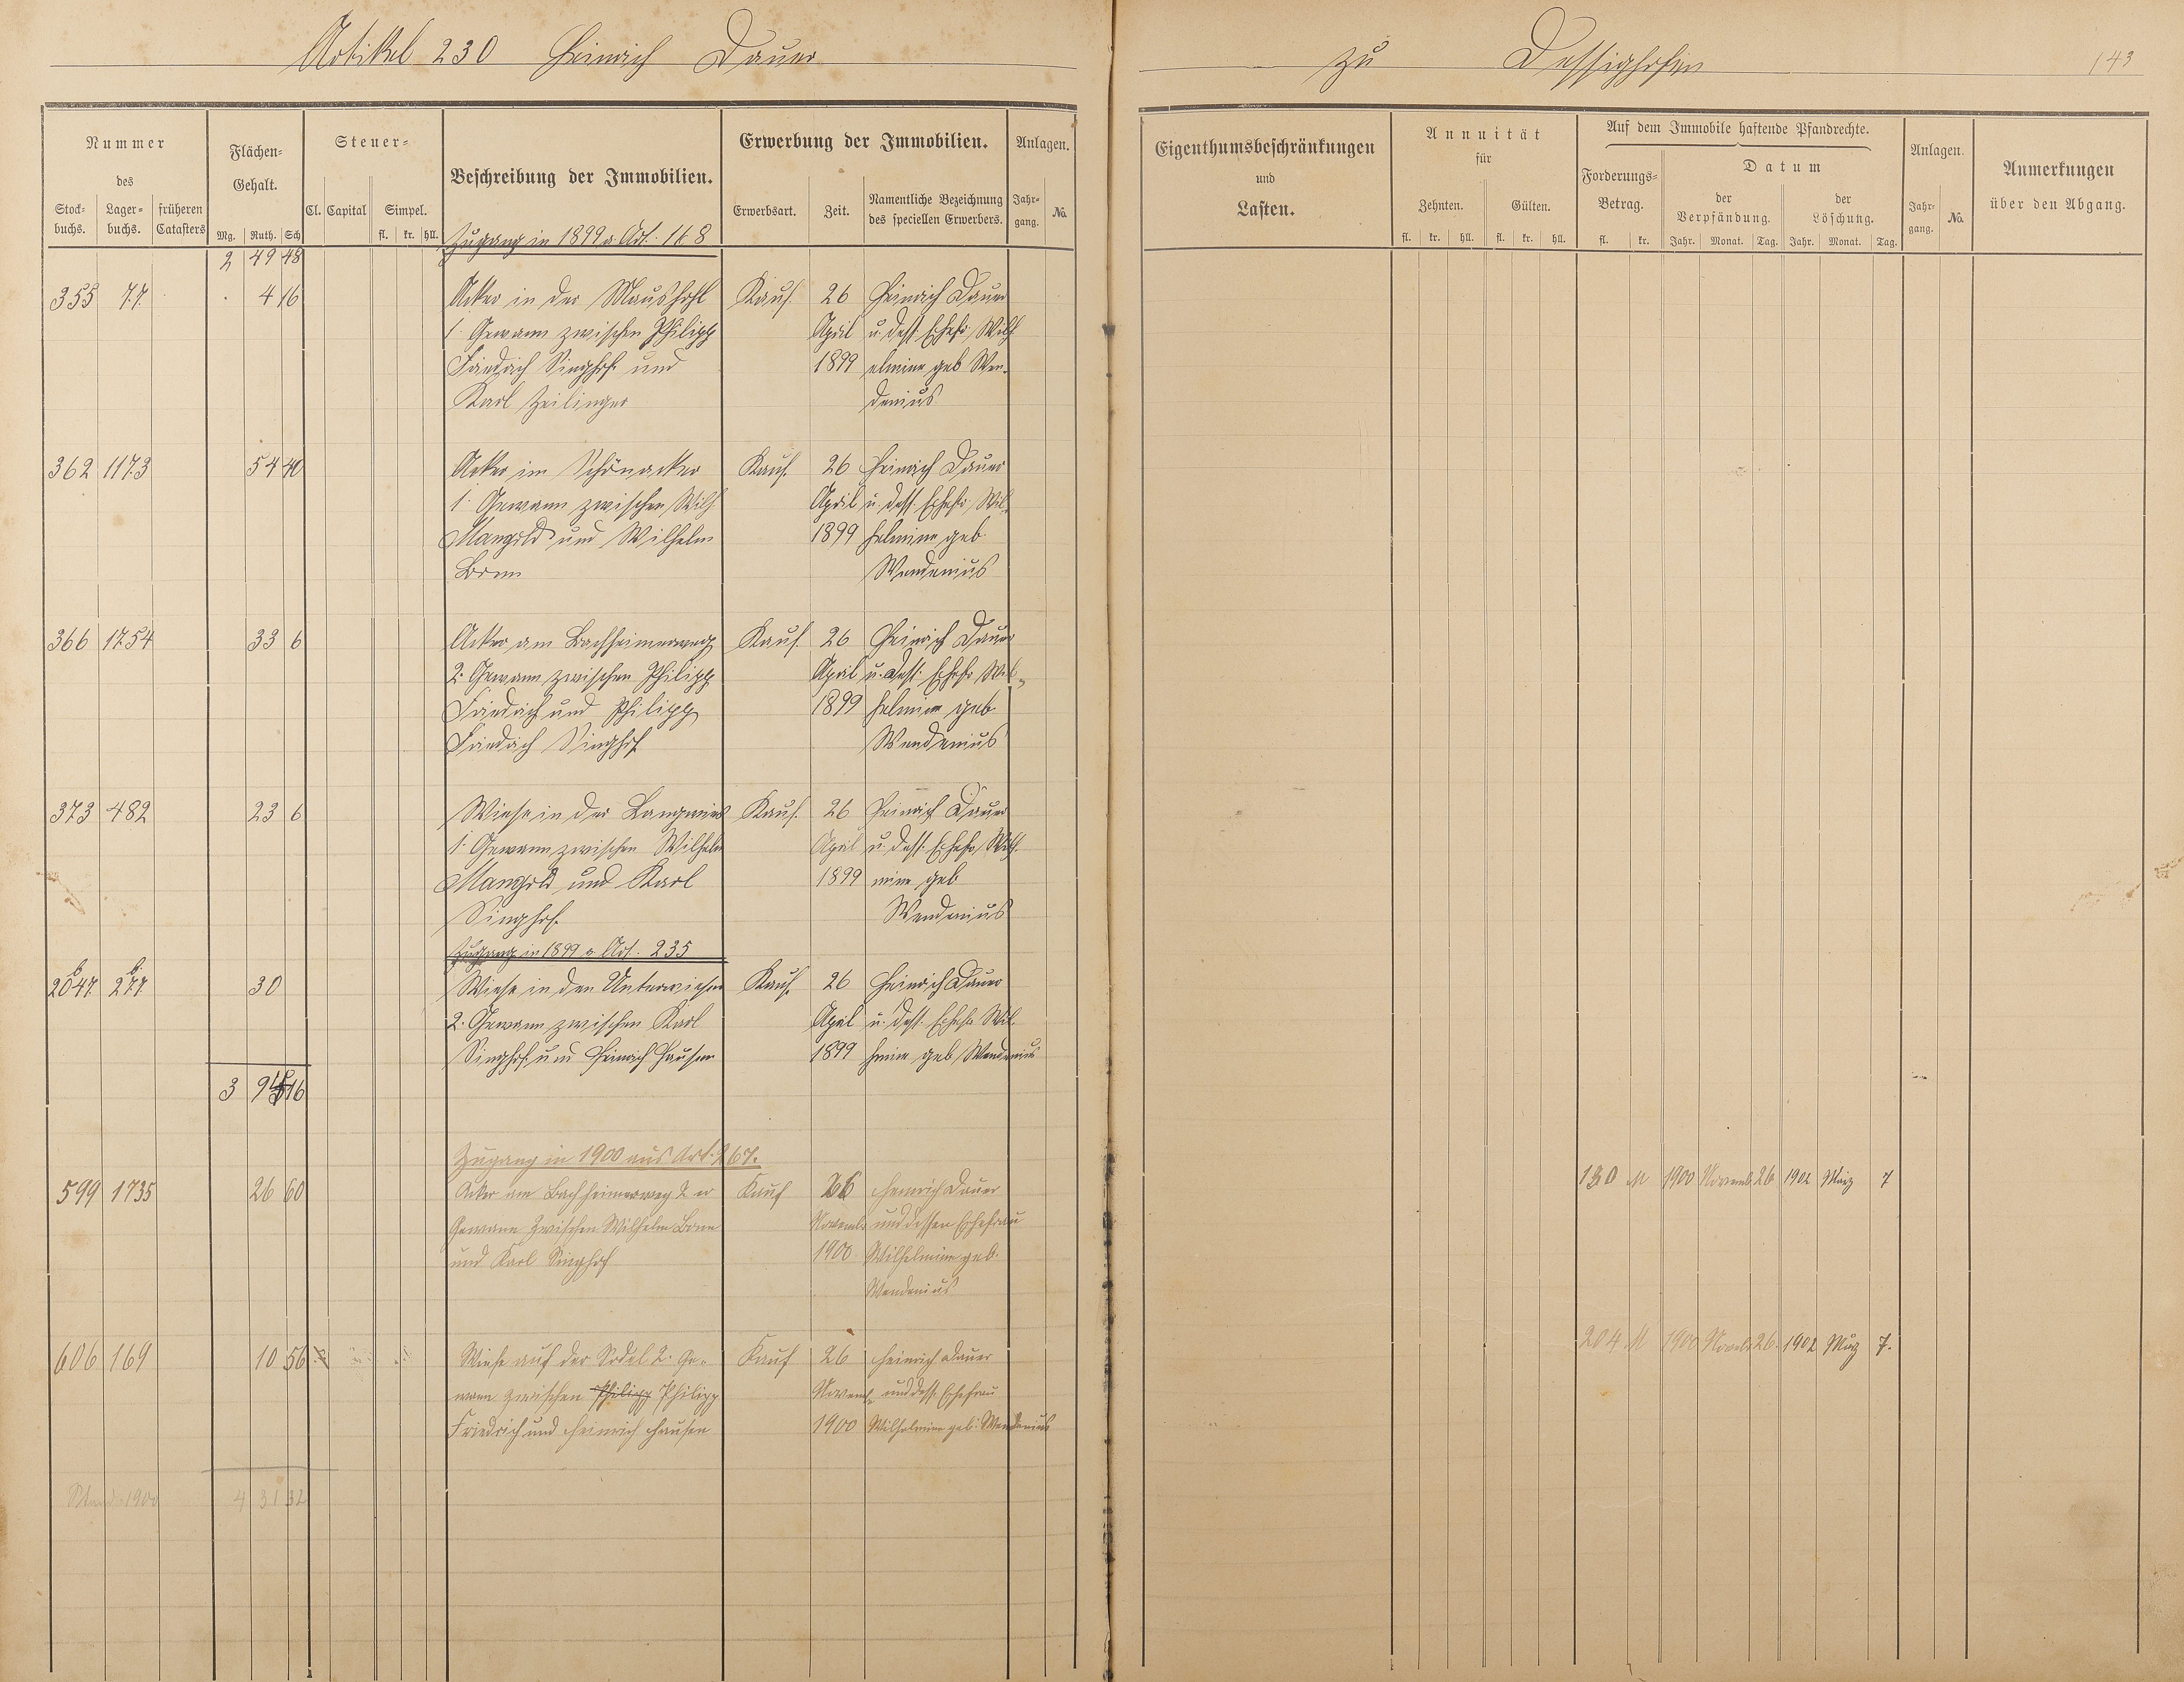 Artikel 230 Heinrich Dauer
zu Dessighofen 143
Nummer
des
Stock-buchs. Lager-buchs. früheren Catasters
Flächen-Gehalt.
Mg. Ruth. Sch
Steuer-
Cl. Capital Simpel.
fl. kr. hll.
Beschreibung der Immobilien.
Erwerbung der Immobilien.
Erwerbsart. Zeit. Namentliche Bezeichnung des speciellen Erwerbers.
Anlagen.
Jahr-gang. No.
Eigenthumsbeschränkungen
und
Lasten.
Annuität
für
Zehnten. Gülten.
fl. kr. hll. fl. kr. hll.
Auf dem Immobile haftende Pfandrechte.
Forderungs-Betrag.
fl. kr.
Datum
der Verpfändung. der Löschung.
Jahr. Monat. Tag. Jahr. Monat. Tag.
Anlagen.
Jahr-gang. No.
Anmerkungen
über den Abgang.
Zugang in 1899 a. Art. 168
2 49 48
355 77 4 16 Acker in der Maushohl Kauf. 26 Heinrich Dauer
1. Gewann zwischen Philipp April u. dess. Ehefr. Wilh
Friedrich Singhof und 1899 elmine geb Wen-
Karl Zeilinger denius
362 1173 54 40 Acker im Schönacker Kauf. 26 Heinrich Dauer
1. Gewann zwischen Wilh. April u. dess. Ehefr. Wil-
Mangold und Wilhelm 1899 helmine geb
Bonn Wendenius
366 1754 33 6 Acker am Bachheimerweg Kauf. 26 Heinrich Dauer
2. Gewann zwischen Philipp April u. dess. Ehefr. Wil-
Friedrich und Philipp 1899 helmine geb
Friedrich Singhof Wendenius
373 482 23 6 Wiese in der Langwies Kauf. 26 Heinrich Dauer
1. Gewann zwischen Wilhelm April u. dess. Ehefr. Wilh.
Mangold und Karl 1899 mine geb
Singhof. Wendenius
Zugang in 1899 a. Art. 235
2047 b 277 b. 30 Wiese in den Unterwiesen Kauf. 26 Heinrich Dauer
2. Gewann zwischen Karl April u. dess. Ehefr. Wil
Singhof und Heinrich Hausen 1899 hmine geb Wendenius
3 94 16
Zugang in 1900 aus Art. 267.
599 1735 26 60 Acker am Bachheimerweg 2er Kauf 26 Heinrich Dauer 130 M 1900 Novemb. 26 1902 März 7
Gewann zwischen Wilhelm Bonn Novemb. und dessen Ehefrau
und Karl Singhof 1900. Wilhelmine geb.
Wendenius
606 169 10 56 Wiese auf der Sodel 2. Ge- Kauf 26 Heinrich Dauer 204 M 1900 Novemb. 26. 1902 März 7.
wann zwischen Philipp Philipp Novemb. und dess. Ehefrau
Friedrich und Heinrich Hausen 1900 Wilhelmine geb. Wendenius
Stand 1900 4 31 32